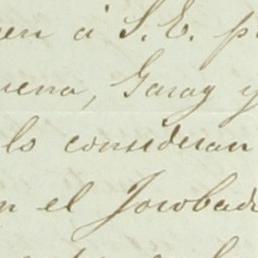 en á S. E. p
uena, Garay y
lo consideran
n el Jorobado